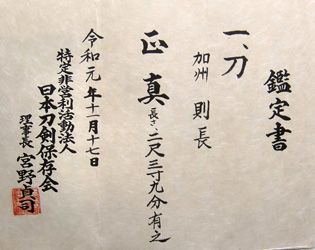 鑑定書
一、刀
加州 則長
正真
長さ、二尺三寸九分有之
令和元年十一月十七日
特定非営利活動法人
日本刀剣保存会
理事長 宮野貞司